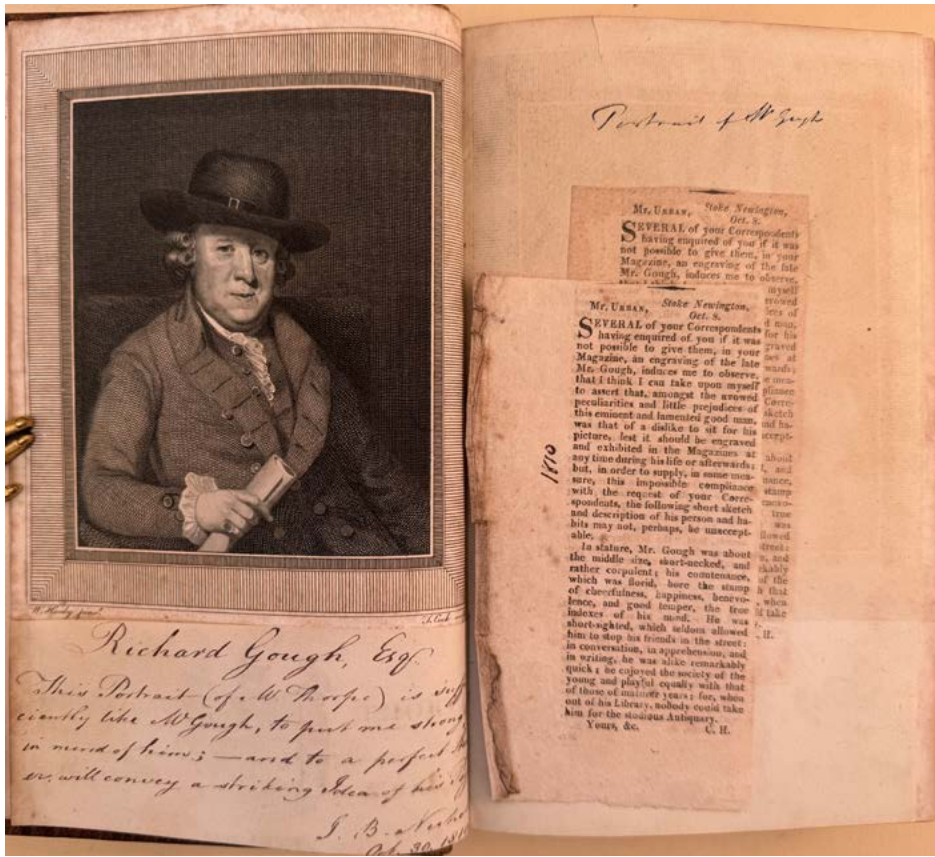 W. Hardy pinx.t
T. Cook
Richard Gough, Esq.
This Portrait (of Mr Thorpe) is suffi
ciently like Mr Gough, to put me strong
in mind of him; — and to a perfect
er, will convey a striking Idea of his
J. B. Nicho
1810
Portrait of Mr Gough
Mr. URBAN, Stoke Newington,
Oct. 8.
SEVERAL of your Correspondents
having enquired of you if it was
not possible to give them, in your
Magazine, an engraving of the late
Mr. Gough, induces me to observe,
Mr. URBAN, Stoke Newington,
Oct. 8.
SEVERAL of your Correspondents
having enquired of you if it was
not possible to give them, in your
Magazine, an engraving of the late
Mr. Gough, induces me to observe,
that I think I can take upon myself
to assert that, amongst the avowed
peculiarities and little prejudices of
this eminent and lamented good man,
was that of a dislike to sit for his
picture, lest it should be engraved
and exhibited in the Magazines at
any time during his life or afterwards;
but, in order to supply, in some mea-
sure, this impossible compliance
with the request of your Corre-
spondents, the following short sketch
and description of his person and ha-
bits may not, perhaps, be unaccept-
able.
In stature, Mr. Gough was about
the middle size, short-necked, and
rather corpulent; his countenance,
which was florid, bore the stamp
of cheerfulness, happiness, benevo-
lence, and good temper, the true
indexes of his mind. He was
short-sighted, which seldom allowed
him to stop his friends in the street:
in conversation, in apprehension, and
in writing, he was alike remarkably
quick; he enjoyed the society of the
young and playful equally with that
of those of maturer years; for, when
out of his Library, nobody could take
him for the studious Antiquary.
Yours, &c. C. H.